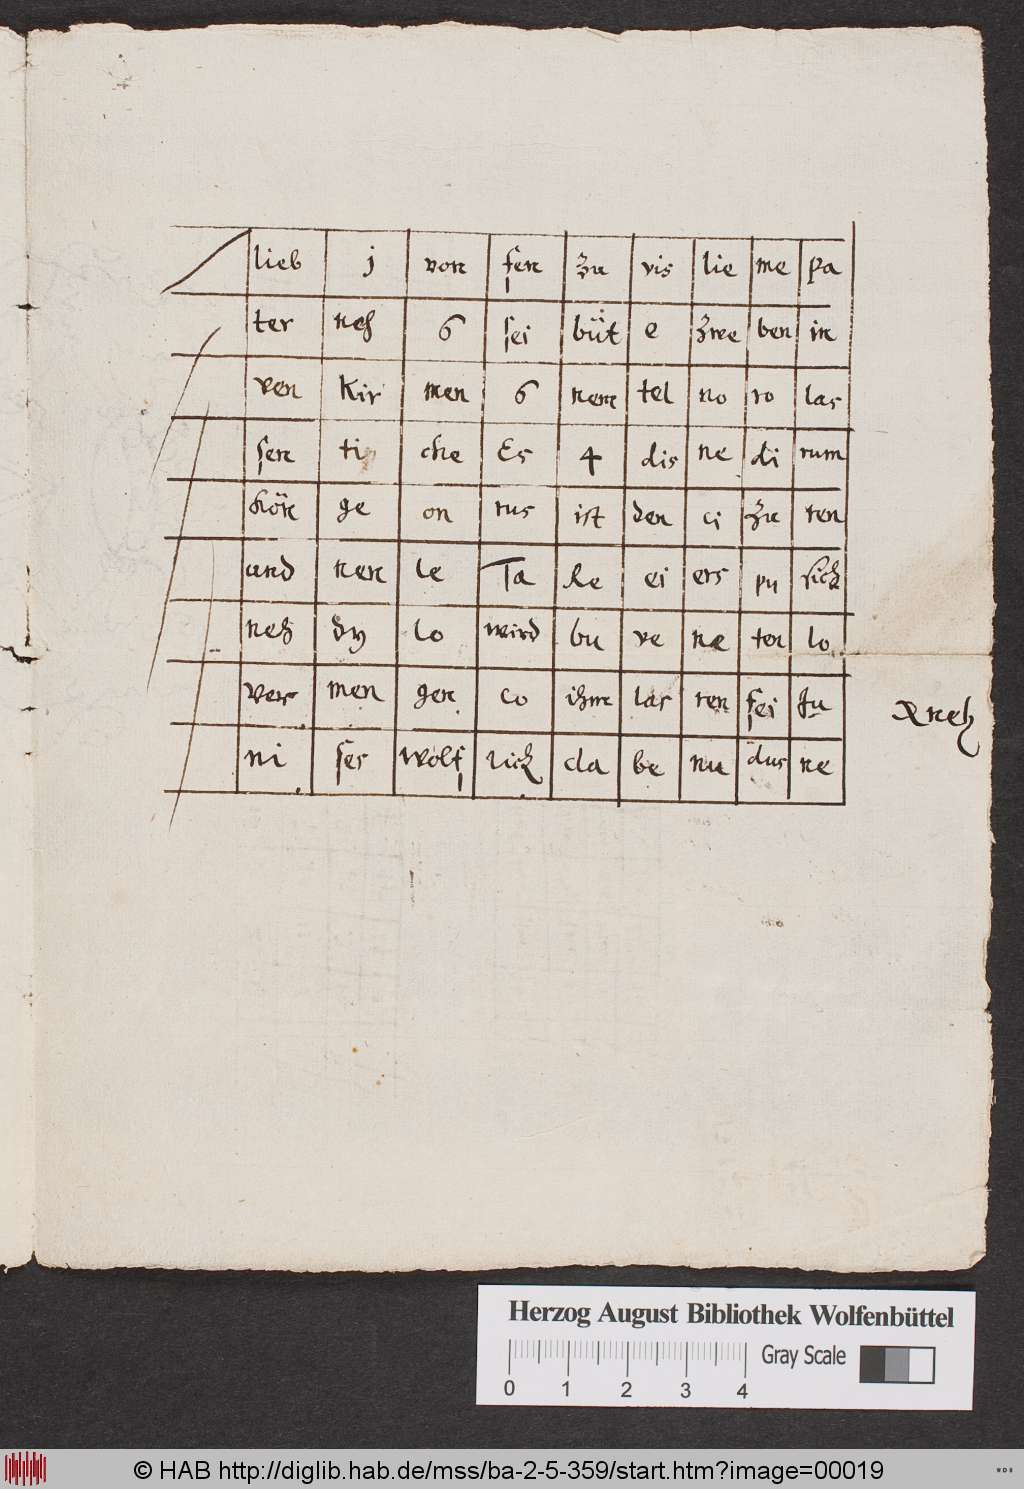 lieb j von sen zu vis lie me pa
ter neh 6 sei büt e zwe ben in
ven Kir men 6 nem tel no ro las
sen ti che Es 4 dis ne di rum
hön ge on rus ist den ci zu ren
und nen le Ta de ei ers pu sich
neh dy lo wird bu ve ne ter lo
vers men gen co ihm las ren sei Ju
ni ses wolf rich da be nu dus ne
Herzog August Bibliothek Wolfenbüttel
Gray Scale
0 1 2 3 4
© HAB http://diglib.hab.de/mss/ba-2-5-359/start.htm?image=00019